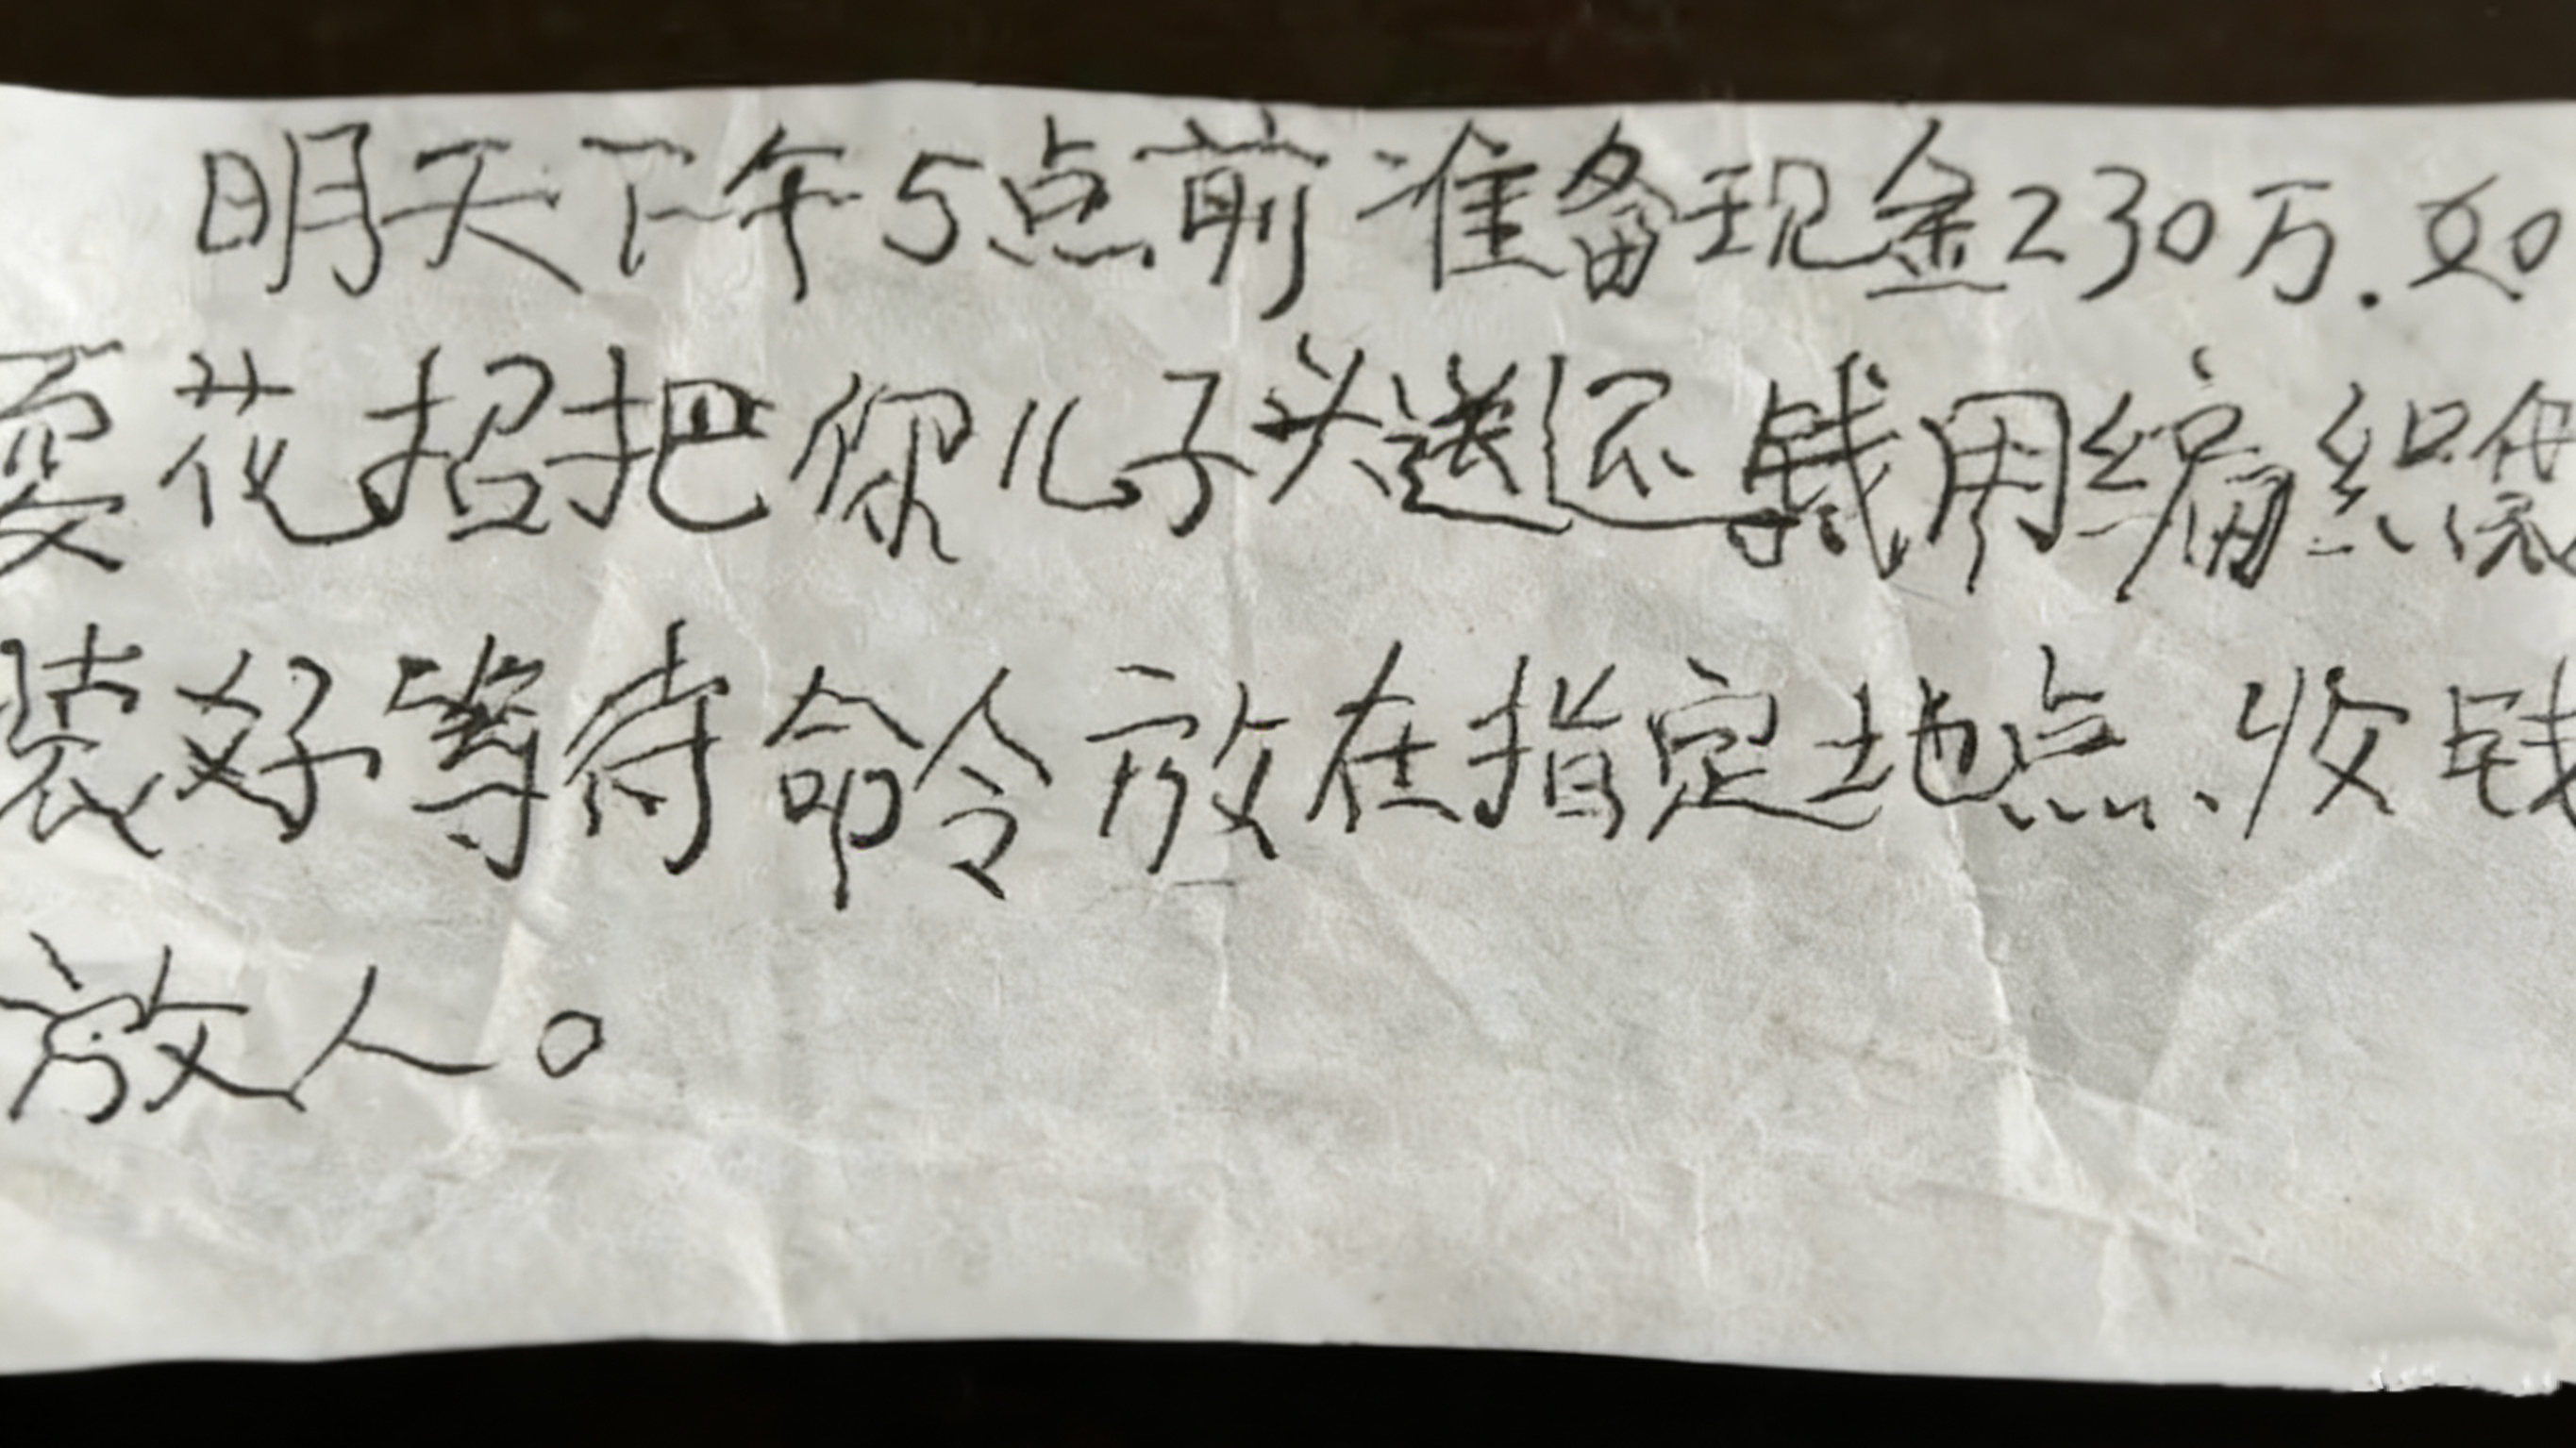 明天下午5点前准备现金230万.如
耍花招把你儿子头送还钱用编织袋
装好等待命令放在指定地点、收钱
放人。